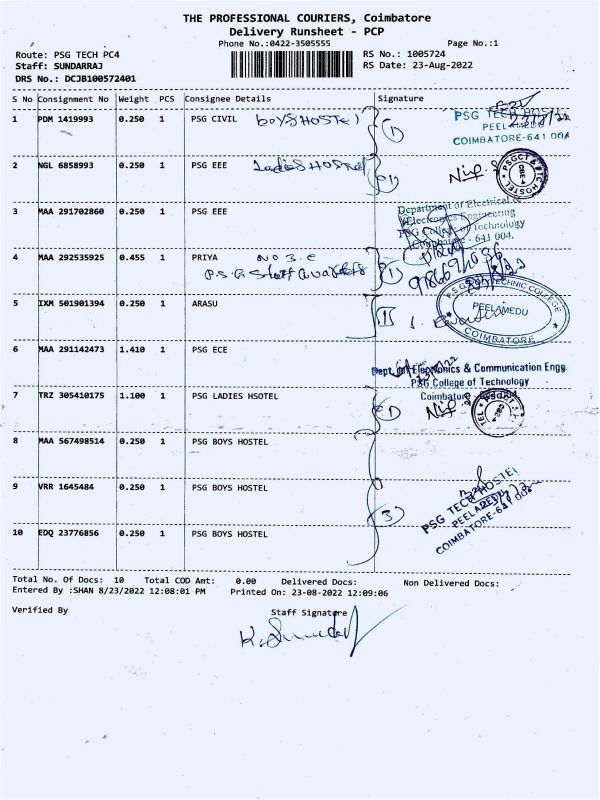 THE PROFESSIONAL COURIERS, Coimbatore
Delivery Runsheet - PCP
Phone No.:0422-3505555 Page No.:1
Route: PSG TECH PC4 RS No.: 1005724
Staff: SUNDARRAJ RS Date: 23-Aug-2022
DRS No.: DCJB100572401
S No Consignment No Weight PCS Consignee Details Signature
1 PDM 1419993 0.250 1 PSG CIVIL BOYS HOSTEL
PSG TECH HOSTEL
PEELAMEDU
COIMBATORE-641 004
2 NGL 6858993 0.250 1 PSG EEE Ladies HOSTEL
3 MAA 291702860 0.250 1 PSG EEE
Department of Electrical &
Electronics Engineering
PSG College of Technology
Coimbatore - 641 004.
4 MAA 292535925 0.455 1 PRIYA NO 3. C
P.S.G Staff Quarters
5 IXM 501901394 0.250 1 ARASU
PEELAMEDU
COIMBATORE
6 MAA 291142473 1.410 1 PSG ECE
Dept. of Electronics & Communication Engg.
PSG College of Technology
7 TRZ 305410175 1.100 1 PSG LADIES HSOTEL
8 MAA 567498514 0.250 1 PSG BOYS HOSTEL
9 VRR 1645484 0.250 1 PSG BOYS HOSTEL
PSG TECH HOSTEL
PEELAMEDU
COIMBATORE-641 004
10 EDQ 23776856 0.250 1 PSG BOYS HOSTEL
Total No. Of Docs: 10 Total COD Amt: 0.00 Delivered Docs: Non Delivered Docs:
Entered By :SHAN 8/23/2022 12:08:01 PM Printed On: 23-08-2022 12:09:06
Verified By Staff Signature